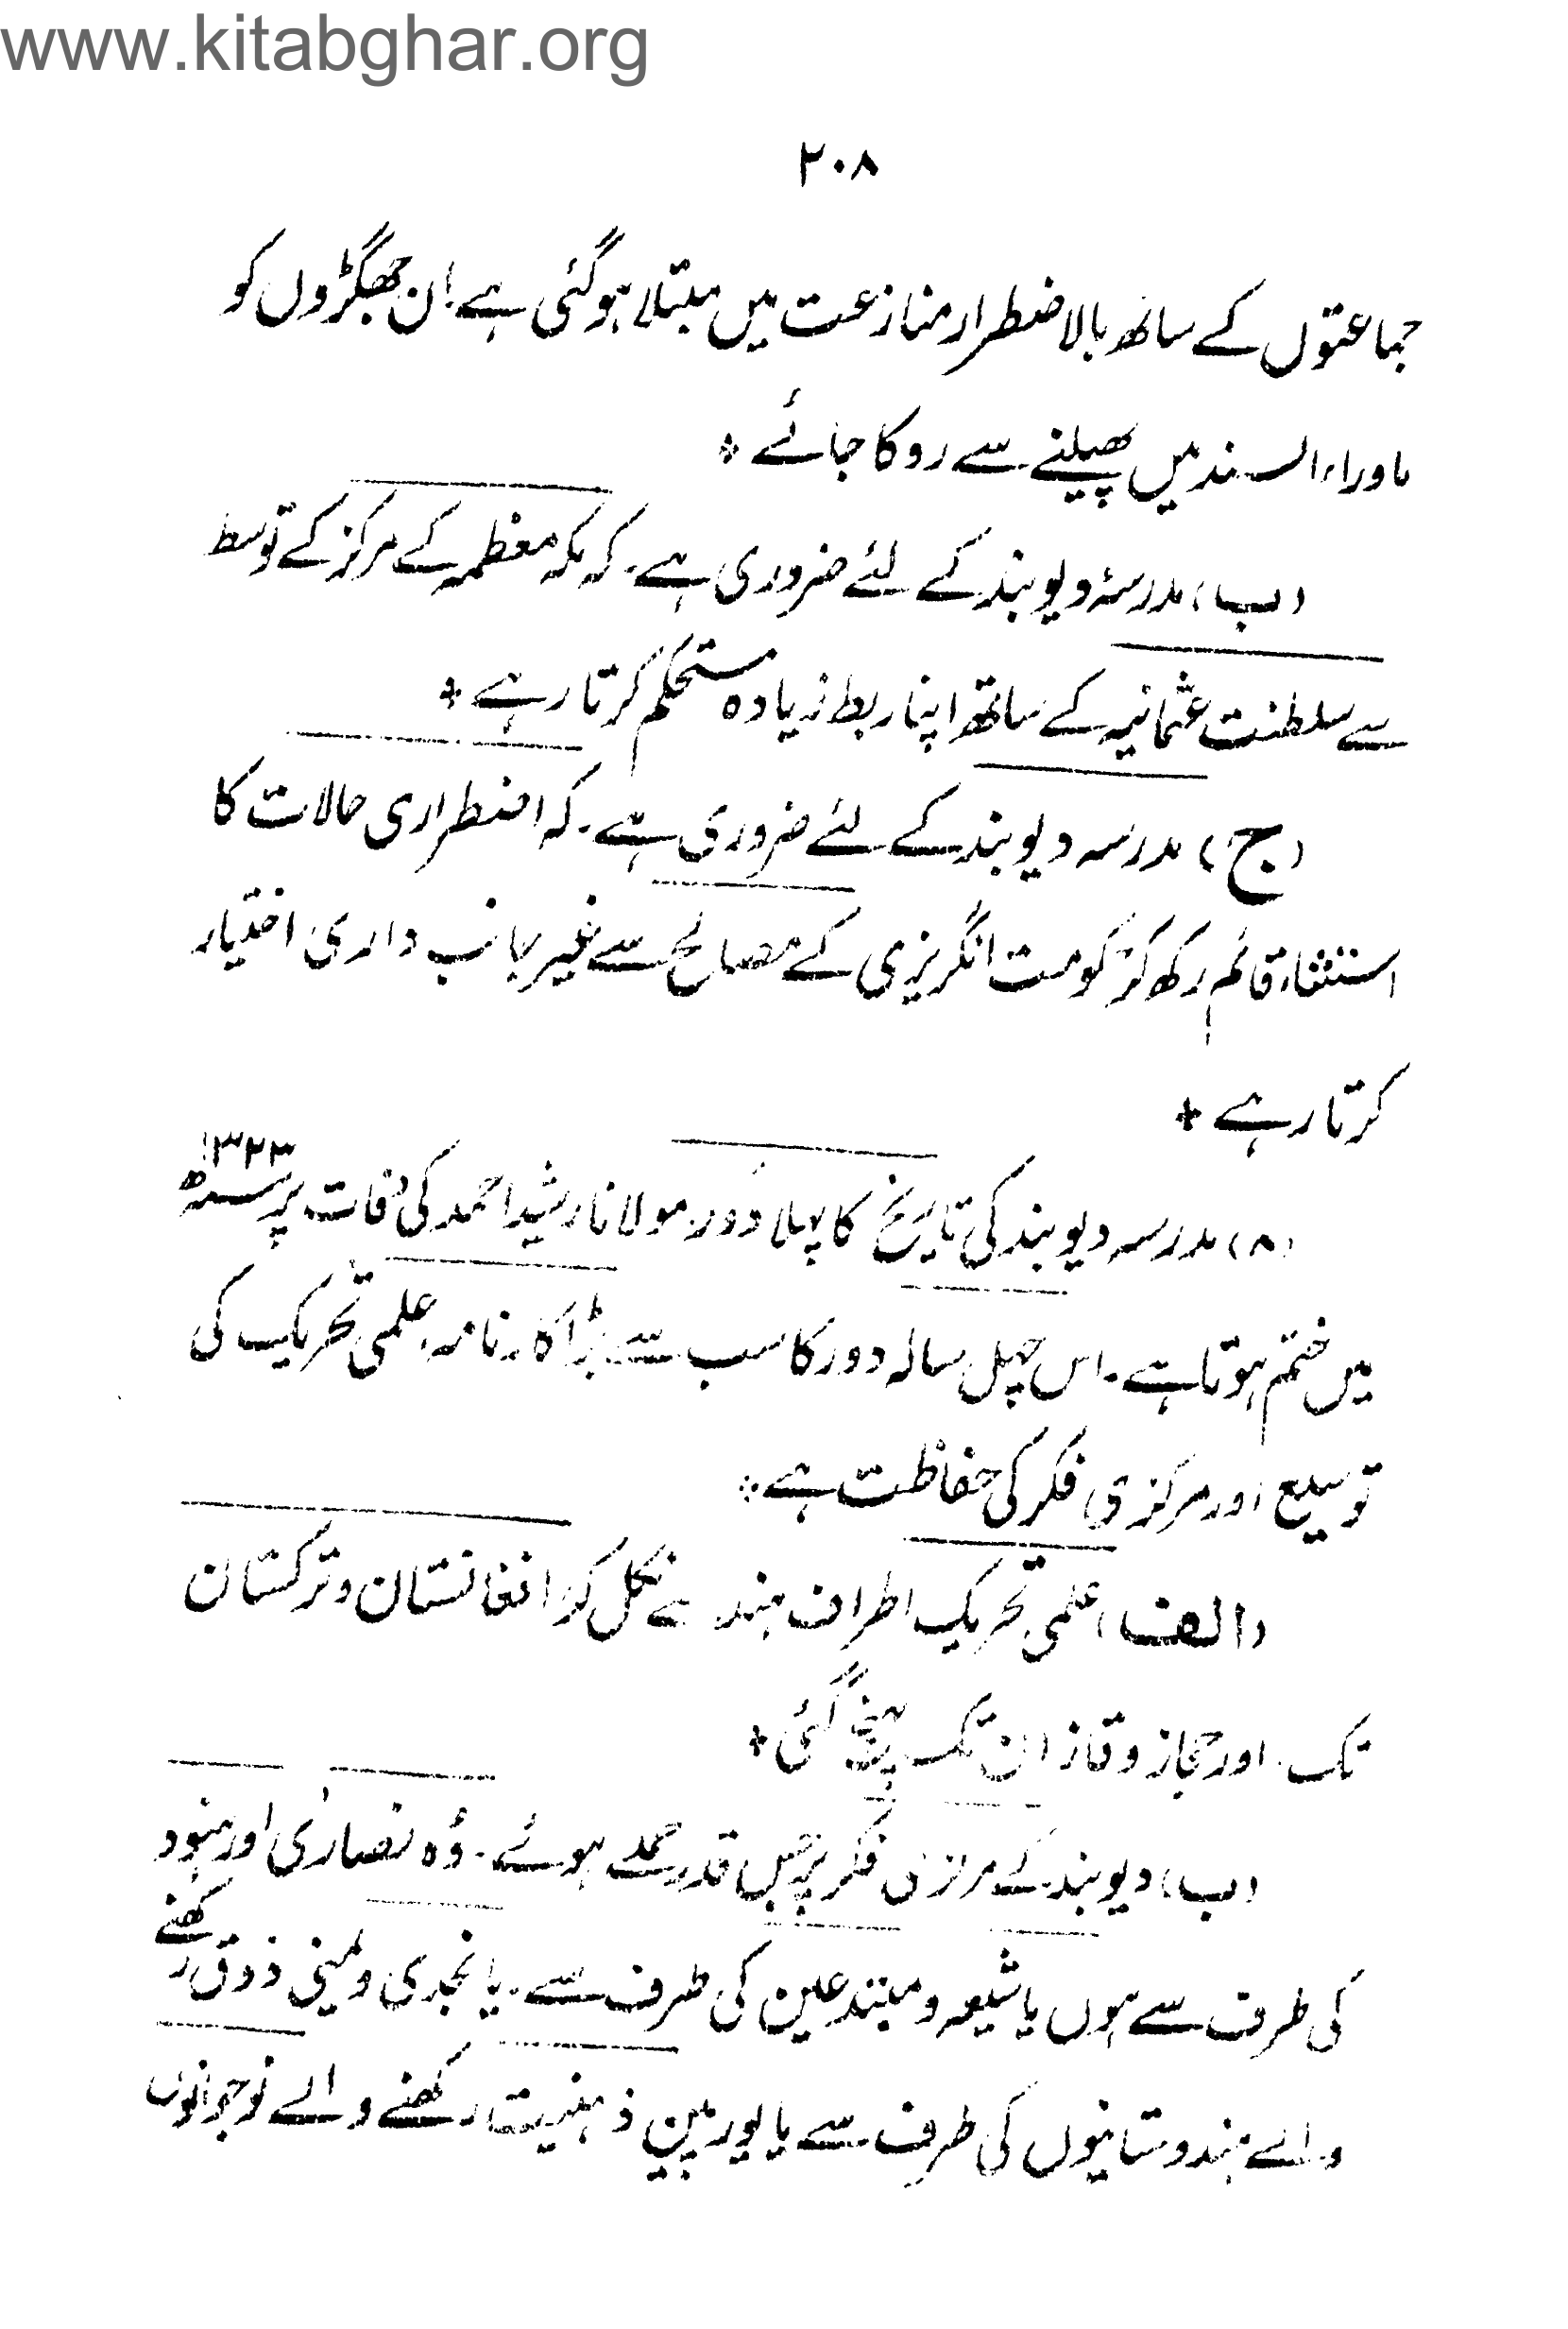 www.kitabghar.org
۲۰۸
جماعتوں کے ساتھ بالاضطرار منازعت میں مبتلا ہوگئی ہے۔ ان جھگڑوں کو
ماوراء السند میں پھیلنے سے روکا جائے *
(ب) مدرسۂ دیوبند کے لئے ضروری ہے۔ کہ مکہ معظمہ کے مرکز کے توسط
سے سلطنت عثمانیہ کے ساتھ اپنا ربط زیادہ مستحکم کرتا رہے *
(ج) مدرسہ دیوبند کے لئے ضروری ہے۔ کہ اضطراری حالات کا
استثناء قائم رکھ کر حکومت انگریزی کے مصالح سے غیر جانب داری اختیار
کرتا رہے *
(۸) مدرسہ دیوبند کی تاریخ کا پہلا دَور مولانا رشید احمد کی وفات پر ۱۳۲۳ھ
میں ختم ہوتا ہے۔ اس چہل سالہ دور کا سب سے بڑا کارنامہ علمی تحریک کی
توسیع اور مرکزی فکر کی حفاظت ہے *
(الف) علمی تحریک اطراف ہند سے نکل کر افغانستان و ترکستان
تک۔ اور حجاز و قازان تک پہنچ گئی *
(ب) دیوبند کے مرکزی فکر پر جس قدر حملے ہوئے۔ وُہ نصاریٰ اور ہنود
کی طرف سے ہوں یا شیعہ و مبتدعین کی طرف سے۔ یا نجدی و یمنی ذوق رکھنے
والے ہندوستانیوں کی طرف سے یا یورپین ذہنیت رکھنے والے نوجوانوں